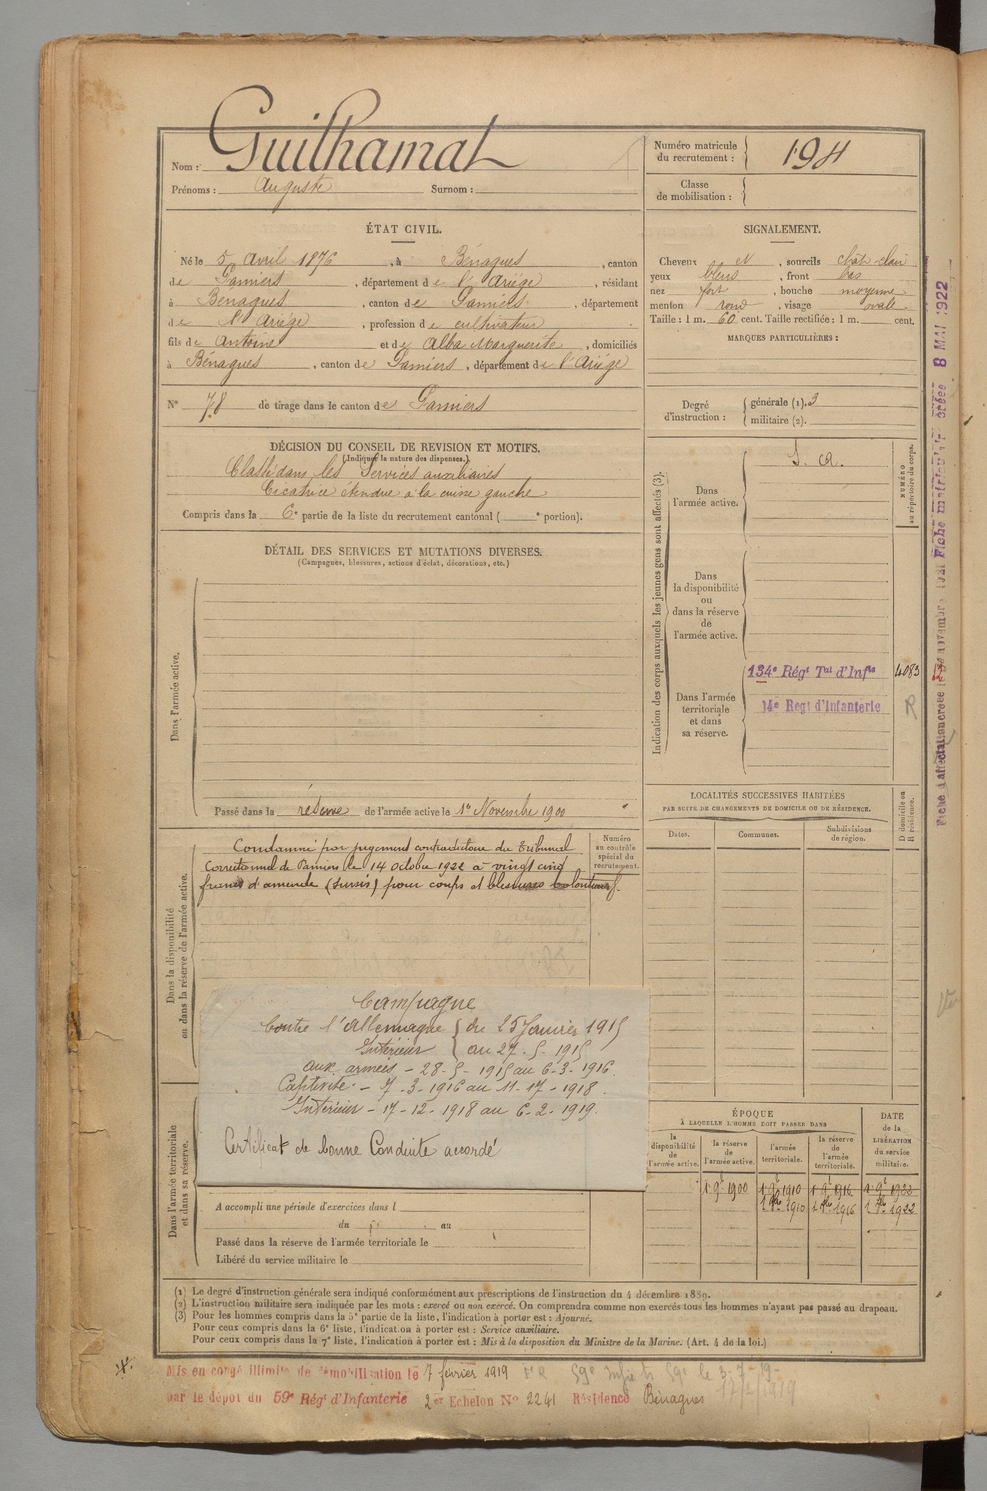 Nom : Guilhamat
Prénoms : Auguste Surnom :
Numéro matricule du recrutement : 194
Classe de mobilisation :
ÉTAT CIVIL.
Né le 5 Avril 1876, à Bénagues, canton
de Pamiers, département de l'Ariège, résidant
à Bénagues, canton de Pamiers, département
de l'Ariège, profession de cultivateur
fils de Antoine et de Alba Marguerite, domiciliés
à Bénagues, canton de Pamiers, département de l'Ariège
N° 78 de tirage dans le canton de Pamiers
SIGNALEMENT.
Cheveux et, sourcils chât clair
yeux bleus, front bas
nez fort, bouche moyenne
menton rond, visage ovale
Taille : 1 m. 60 cent. Taille rectifiée : 1 m. cent.
MARQUES PARTICULIÈRES :
Degré d'instruction : générale (1). 3
militaire (2).
DÉCISION DU CONSEIL DE REVISION ET MOTIFS.
(Indiquer la nature des dispenses.)
Classé dans les Services auxiliaires
Cicatrice étendue à la cuisse gauche
Compris dans la 6e partie de la liste du recrutement cantonal ( e portion).
DÉTAIL DES SERVICES ET MUTATIONS DIVERSES.
(Campagnes, blessures, actions d'éclat, décorations, etc.)
Dans l'armée active.
Passé dans la réserve de l'armée active le 1er Novembre 1900
Indication des corps auxquels les jeunes gens sont affectés (3).
NUMÉRO au répertoire du corps.
Dans l'armée active.
S. a.
Dans la disponibilité ou dans la réserve de l'armée active.
Dans l'armée territoriale et dans sa réserve.
134e Régt Tal d'Infie 4083
14e Regt d'Infanterie R
LOCALITÉS SUCCESSIVES HABITÉES
PAR SUITE DE CHANGEMENTS DE DOMICILE OU DE RÉSIDENCE.
Dates. Communes. Subdivisions de région.
D domicile ou R résidence.
Dans la disponibilité ou dans la réserve de l'armée active.
Numéro au contrôle spécial du recrutement.
Condamné par jugement contradictoire du Tribunal
Correctionnel de Pamiers le 14 octobre 1922 à vingt cinq
francs d'amende (sursis) pour coups et blessures volontaires.
Campagne
Contre l'Allemagne { du 25 Janvier 1915
Intérieur { au 27. 5. 1915
aux armées - 28-5-1915 au 6-3-1916
Captivité - 7-3-1916 au 11-17-1918
Intérieur - 17-12-1918 au 6-2-1919.
Certificat de bonne Conduite accordé
Dans l'armée territoriale et dans sa réserve.
A accompli une période d'exercices dans l
du au
Passé dans la réserve de l'armée territoriale le
Libéré du service militaire le
ÉPOQUE
À LAQUELLE L'HOMME DOIT PASSER DANS
la disponibilité de l'armée active.
la réserve de l'armée active.
l'armée territoriale.
la réserve de l'armée territoriale.
DATE de la LIBÉRATION du service militaire.
1 9bre 1900 1 9bre 1910 1 9bre 1916 1 9bre 1922
1910 1916 1922
(1) Le degré d'instruction générale sera indiqué conformément aux prescriptions de l'instruction du 4 décembre 1889.
(2) L'instruction militaire sera indiquée par les mots : exercé ou non exercé. On comprendra comme non exercés tous les hommes n'ayant pas passé au drapeau.
(3) Pour les hommes compris dans la 5e partie de la liste, l'indication à porter est : Ajourné.
Pour ceux compris dans la 6e liste, l'indication à porter est : Service auxiliaire.
Pour ceux compris dans la 7e liste, l'indication à porter est : Mis à la disposition du Ministre de la Marine. (Art. 4 de la loi.)
Mis en congé illimité de démobilisation le 7 février 1919
par le dépôt du 59e Régt d'Infanterie 2er Echelon N° 2241 Résidence Bénagues
8 MAI 1922